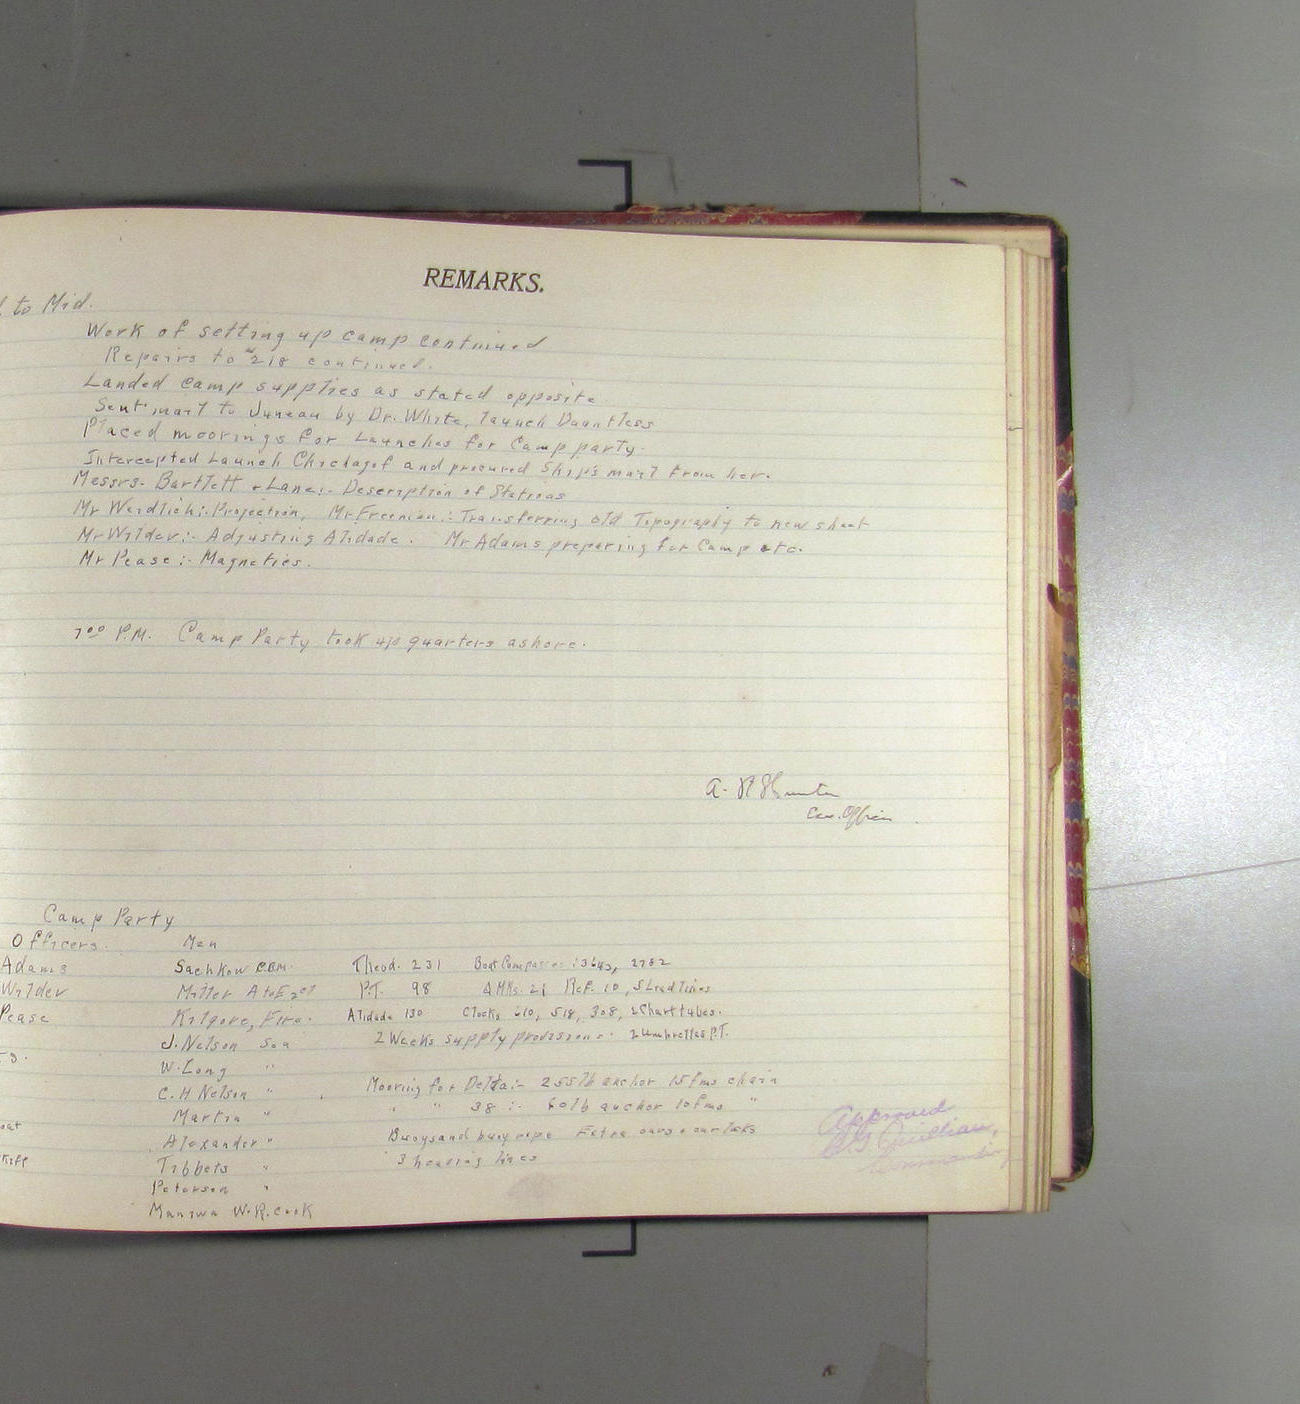 REMARKS.
to Mid.
Work of setting up camp continued
Repairs to #218 continued.
Landed camp supplies as stated opposite
Sent mail to Juneau by Dr. White, launch Dauntless
Placed moorings for Launches for Camp party.
Intercepted Launch Chichagof and procured Ship's mail from her.
Messrs. Bartlett & Lane:- Description of Stations
Mr Weidlich:- Projection, Mr Freeman:- Transferring old Topography to new sheet
Mr Wilder:- Adjusting Alidade. Mr Adams preparing for Camp etc.
Mr Pease:- Magnetics.
7⁰⁰ P.M. Camp Party took up quarters ashore.
A. Hunter
Ex. Officer
Camp Party
Officers. Men
Adams Sachkow C.B.M. Theod. 231 Boat Compasses 2782
Wilder Miller P.T. 98 Ref. 10, 5 Lead lines
Pease Kilgore, Fire. Alidade 130 Clocks 610, 518, 308, 2 Chart tubes.
J. Nelson Sea 2 Weeks supply provisions. 2 umbrellas P.T.
W. Long "
C. H Nelson " Mooring for Delta:- 255 lb anchor 15 fms chain
Martin " " " 38 :- 60 lb anchor 10 fms "
Alexander " Buoys and buoy rope Extra oars & oar locks
Tibbets " 3 heaving lines
Peterson "
Maniwa W.R. cook
Approved
Quillian,
Commanding